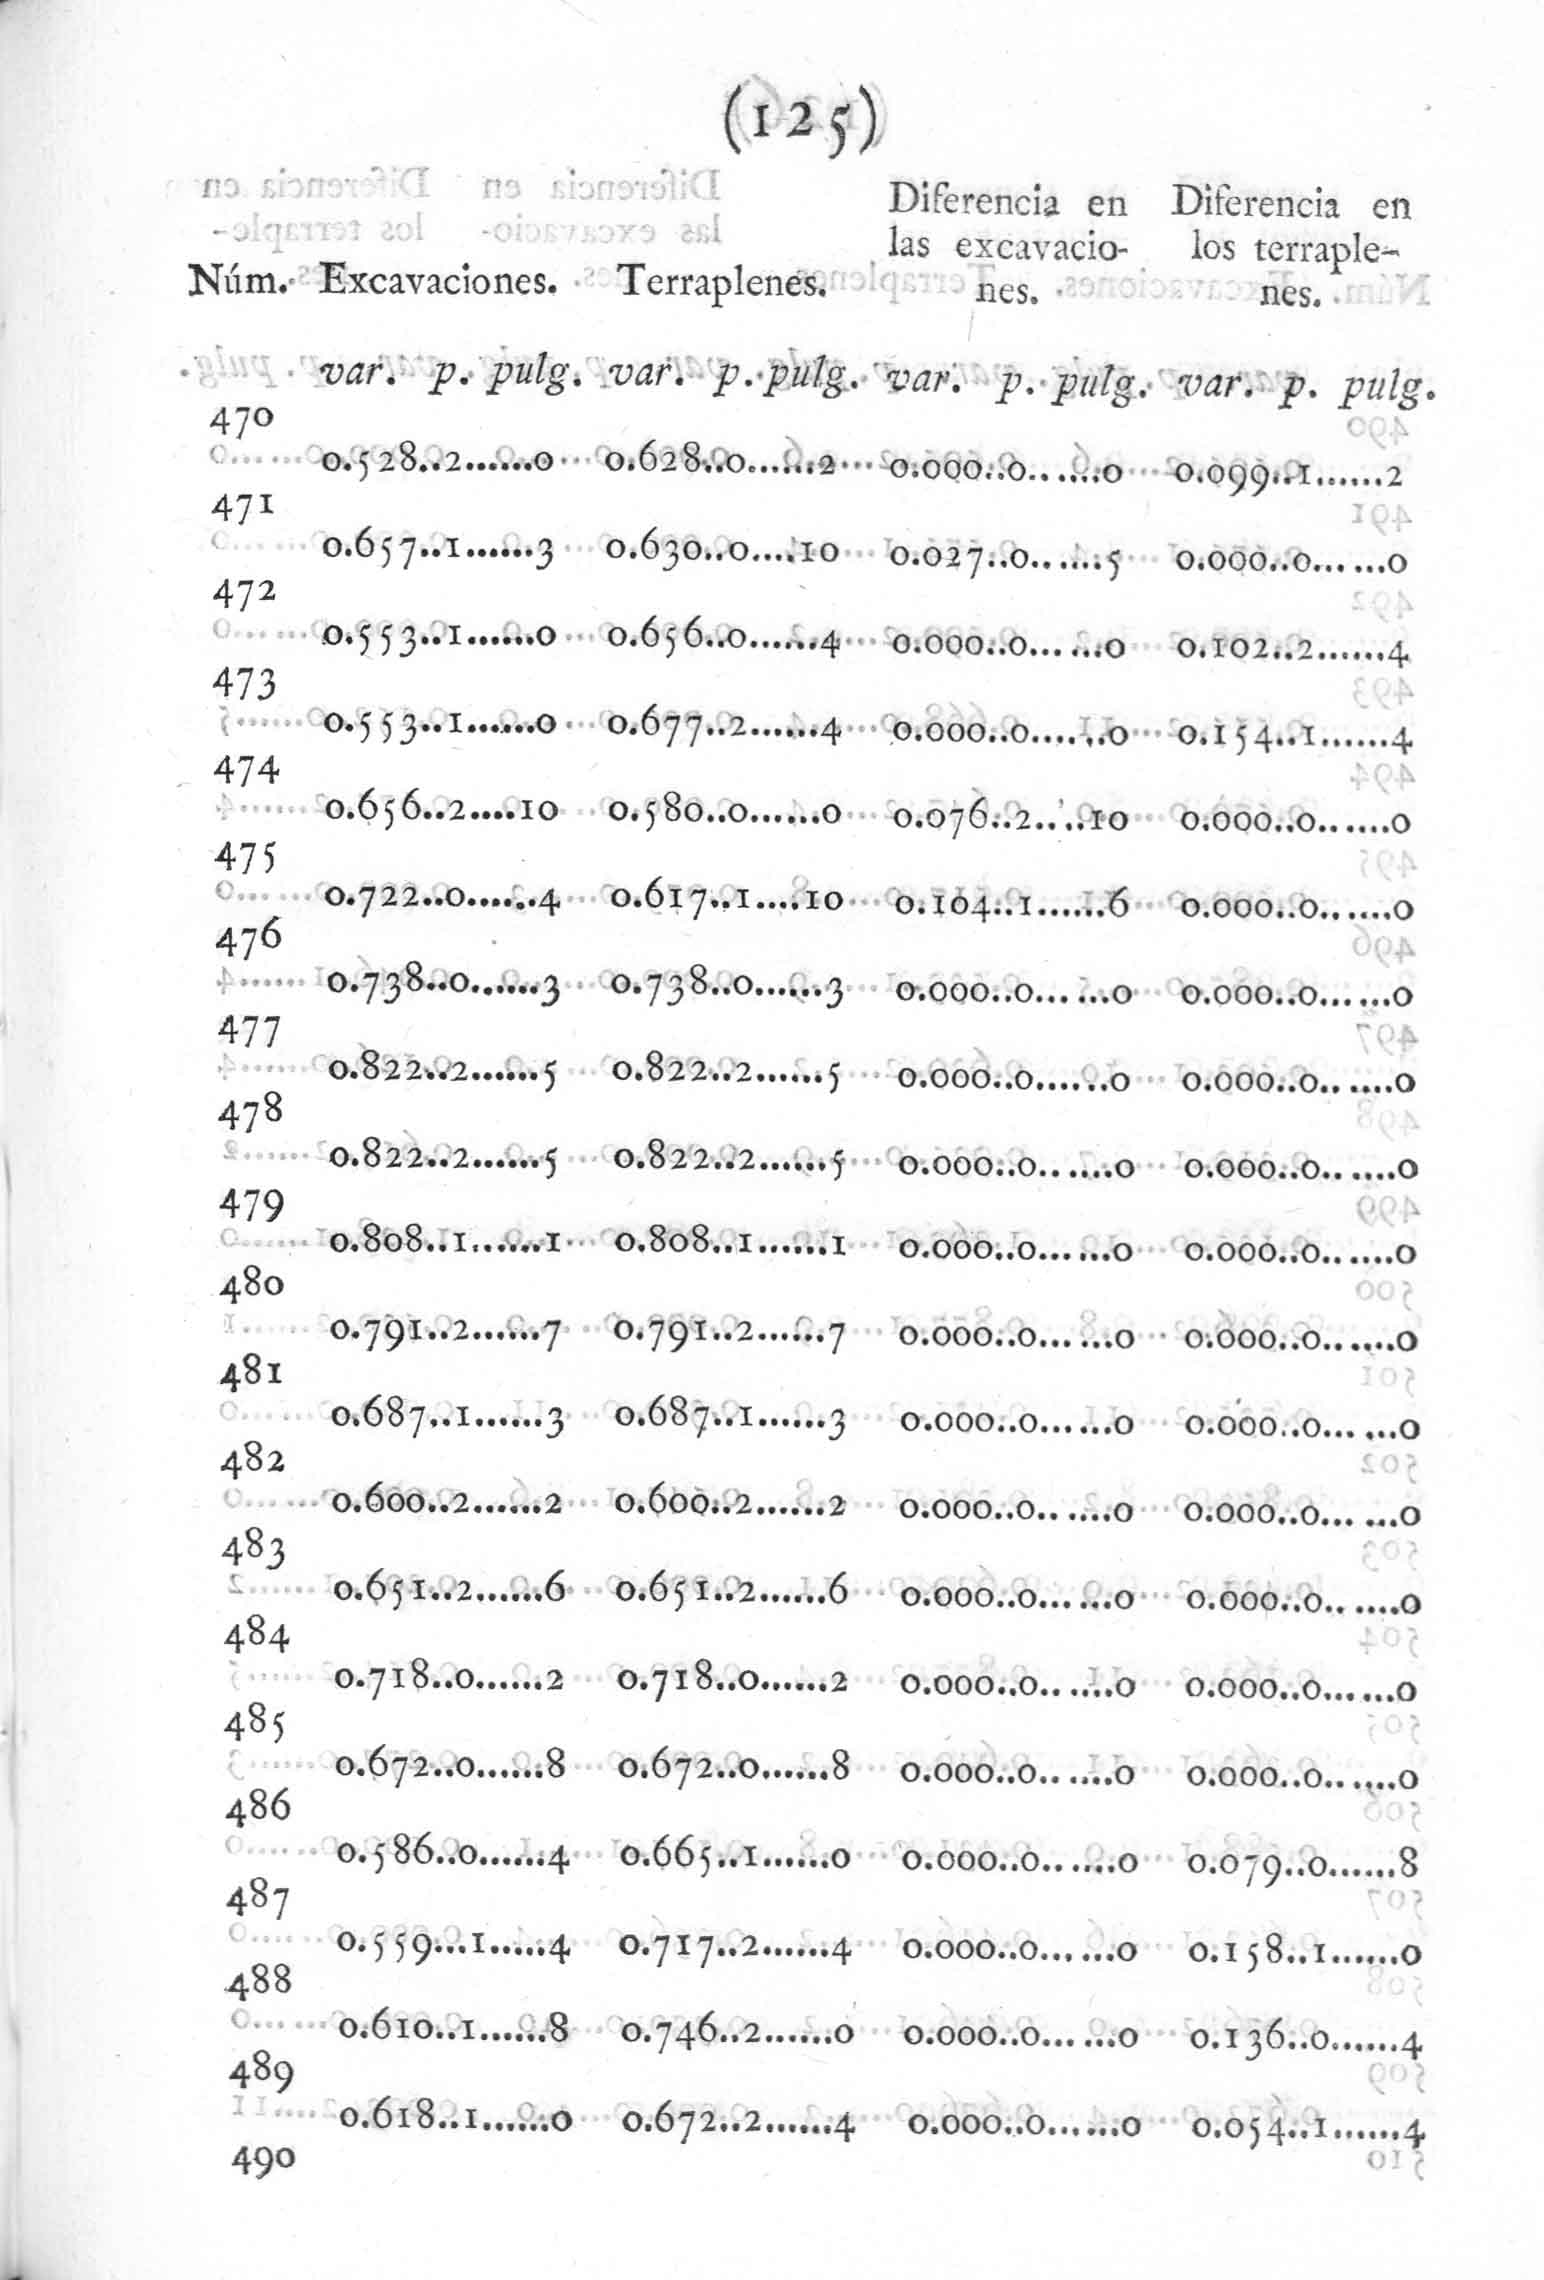 (125)
Diferencia en Diferencia en
las excavacio- los terraple-
Núm. Excavaciones. Terraplenes. nes. nes.
var. p. pulg. var. p. pulg. var. p. pulg. var. p. pulg.
470
0.528..2......0 0.628..0......2 0.000..0......0 0.099..1......2
471
0.657..1......3 0.630..0....10 0.027..0......5 0.000..0......0
472
0.553..1......0 0.656..0......4 0.000..0......0 0.102..2......4
473
0.553..1......0 0.677..2......4 0.000..0......0 0.154..1......4
474
0.656..2....10 0.580..0......0 0.076..2....10 0.000..0......0
475
0.722..0......4 0.617..1....10 0.104..1......6 0.000..0......0
476
0.738..0......3 0.738..0......3 0.000..0......0 0.000..0......0
477
0.822..2......5 0.822..2......5 0.000..0......0 0.000..0......0
478
0.822..2......5 0.822..2......5 0.000..0......0 0.000..0......0
479
0.808..1......1 0.808..1......1 0.000..0......0 0.000..0......0
480
0.791..2......7 0.791..2......7 0.000..0......0 0.000..0......0
481
0.687..1......3 0.687..1......3 0.000..0......0 0.000..0......0
482
0.600..2......2 0.600..2......2 0.000..0......0 0.000..0......0
483
0.651..2......6 0.651..2......6 0.000..0......0 0.000..0......0
484
0.718..0......2 0.718..0......2 0.000..0......0 0.000..0......0
485
0.672..0......8 0.672..0......8 0.000..0......0 0.000..0......0
486
0.586..0......4 0.665..1......0 0.000..0......0 0.079..0......8
487
0.559...1.....4 0.717..2......4 0.000..0......0 0.158..1......0
488
0.610..1......8 0.746..2......0 0.000..0......0 0.136..0......4
489
0.618..1......0 0.672..2......4 0.000..0......0 0.054..1......4
490